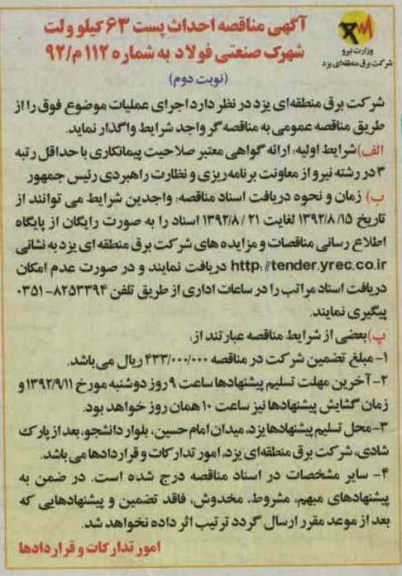 آگهی مناقصه احداث پست ۶۳ کیلو ولت
شهرک صنعتی فولاد به شماره ۱۱۲م/۹۲
(نوبت دوم)
وزارت نیرو
شرکت برق منطقه‌ای یزد
شرکت برق منطقه‌ای یزد در نظر دارد اجرای عملیات موضوع فوق را از
طریق مناقصه عمومی به مناقصه‌گر واجد شرایط واگذار نماید.
الف) شرایط اولیه: ارائه گواهی معتبر صلاحیت پیمانکاری با حداقل رتبه
۳ در رشته نیرو از معاونت برنامه‌ریزی و نظارت راهبردی رئیس جمهور
ب) زمان و نحوه دریافت اسناد مناقصه: واجدین شرایط می توانند از
تاریخ ۱۳۹۲/۸/۱۵ لغایت ۱۳۹۲/۸/۲۱ اسناد را به صورت رایگان از پایگاه
اطلاع رسانی مناقصات و مزایده های شرکت برق منطقه ای یزد به نشانی
http://tender.yrec.co.ir دریافت نمایند و در صورت عدم امکان
دریافت اسناد مراتب را در ساعات اداری از طریق تلفن ۸۲۵۳۳۹۴-۰۳۵۱
پیگیری نمایند.
پ) بعضی از شرایط مناقصه عبارتند از:
۱- مبلغ تضمین شرکت در مناقصه ۴۳۳/۰۰۰/۰۰۰ ریال می‌باشد.
۲- آخرین مهلت تسلیم پیشنهادها ساعت ۹ روز دوشنبه مورخ ۱۳۹۲/۹/۱۱ و
زمان گشایش پیشنهادها نیز ساعت ۱۰ همان روز خواهد بود.
۳- محل تسلیم پیشنهادها یزد، میدان امام حسین، بلوار دانشجو، بعد از پارک
شادی، شرکت برق منطقه‌ای یزد، امور تدارکات و قراردادها می‌باشد.
۴- سایر مشخصات در اسناد مناقصه درج شده است. در ضمن به
پیشنهادهای مبهم، مشروط، مخدوش، فاقد تضمین و پیشنهادهایی که
بعد از موعد مقرر ارسال گردد ترتیب اثر داده نخواهد شد.
امور تدارکات و قراردادها